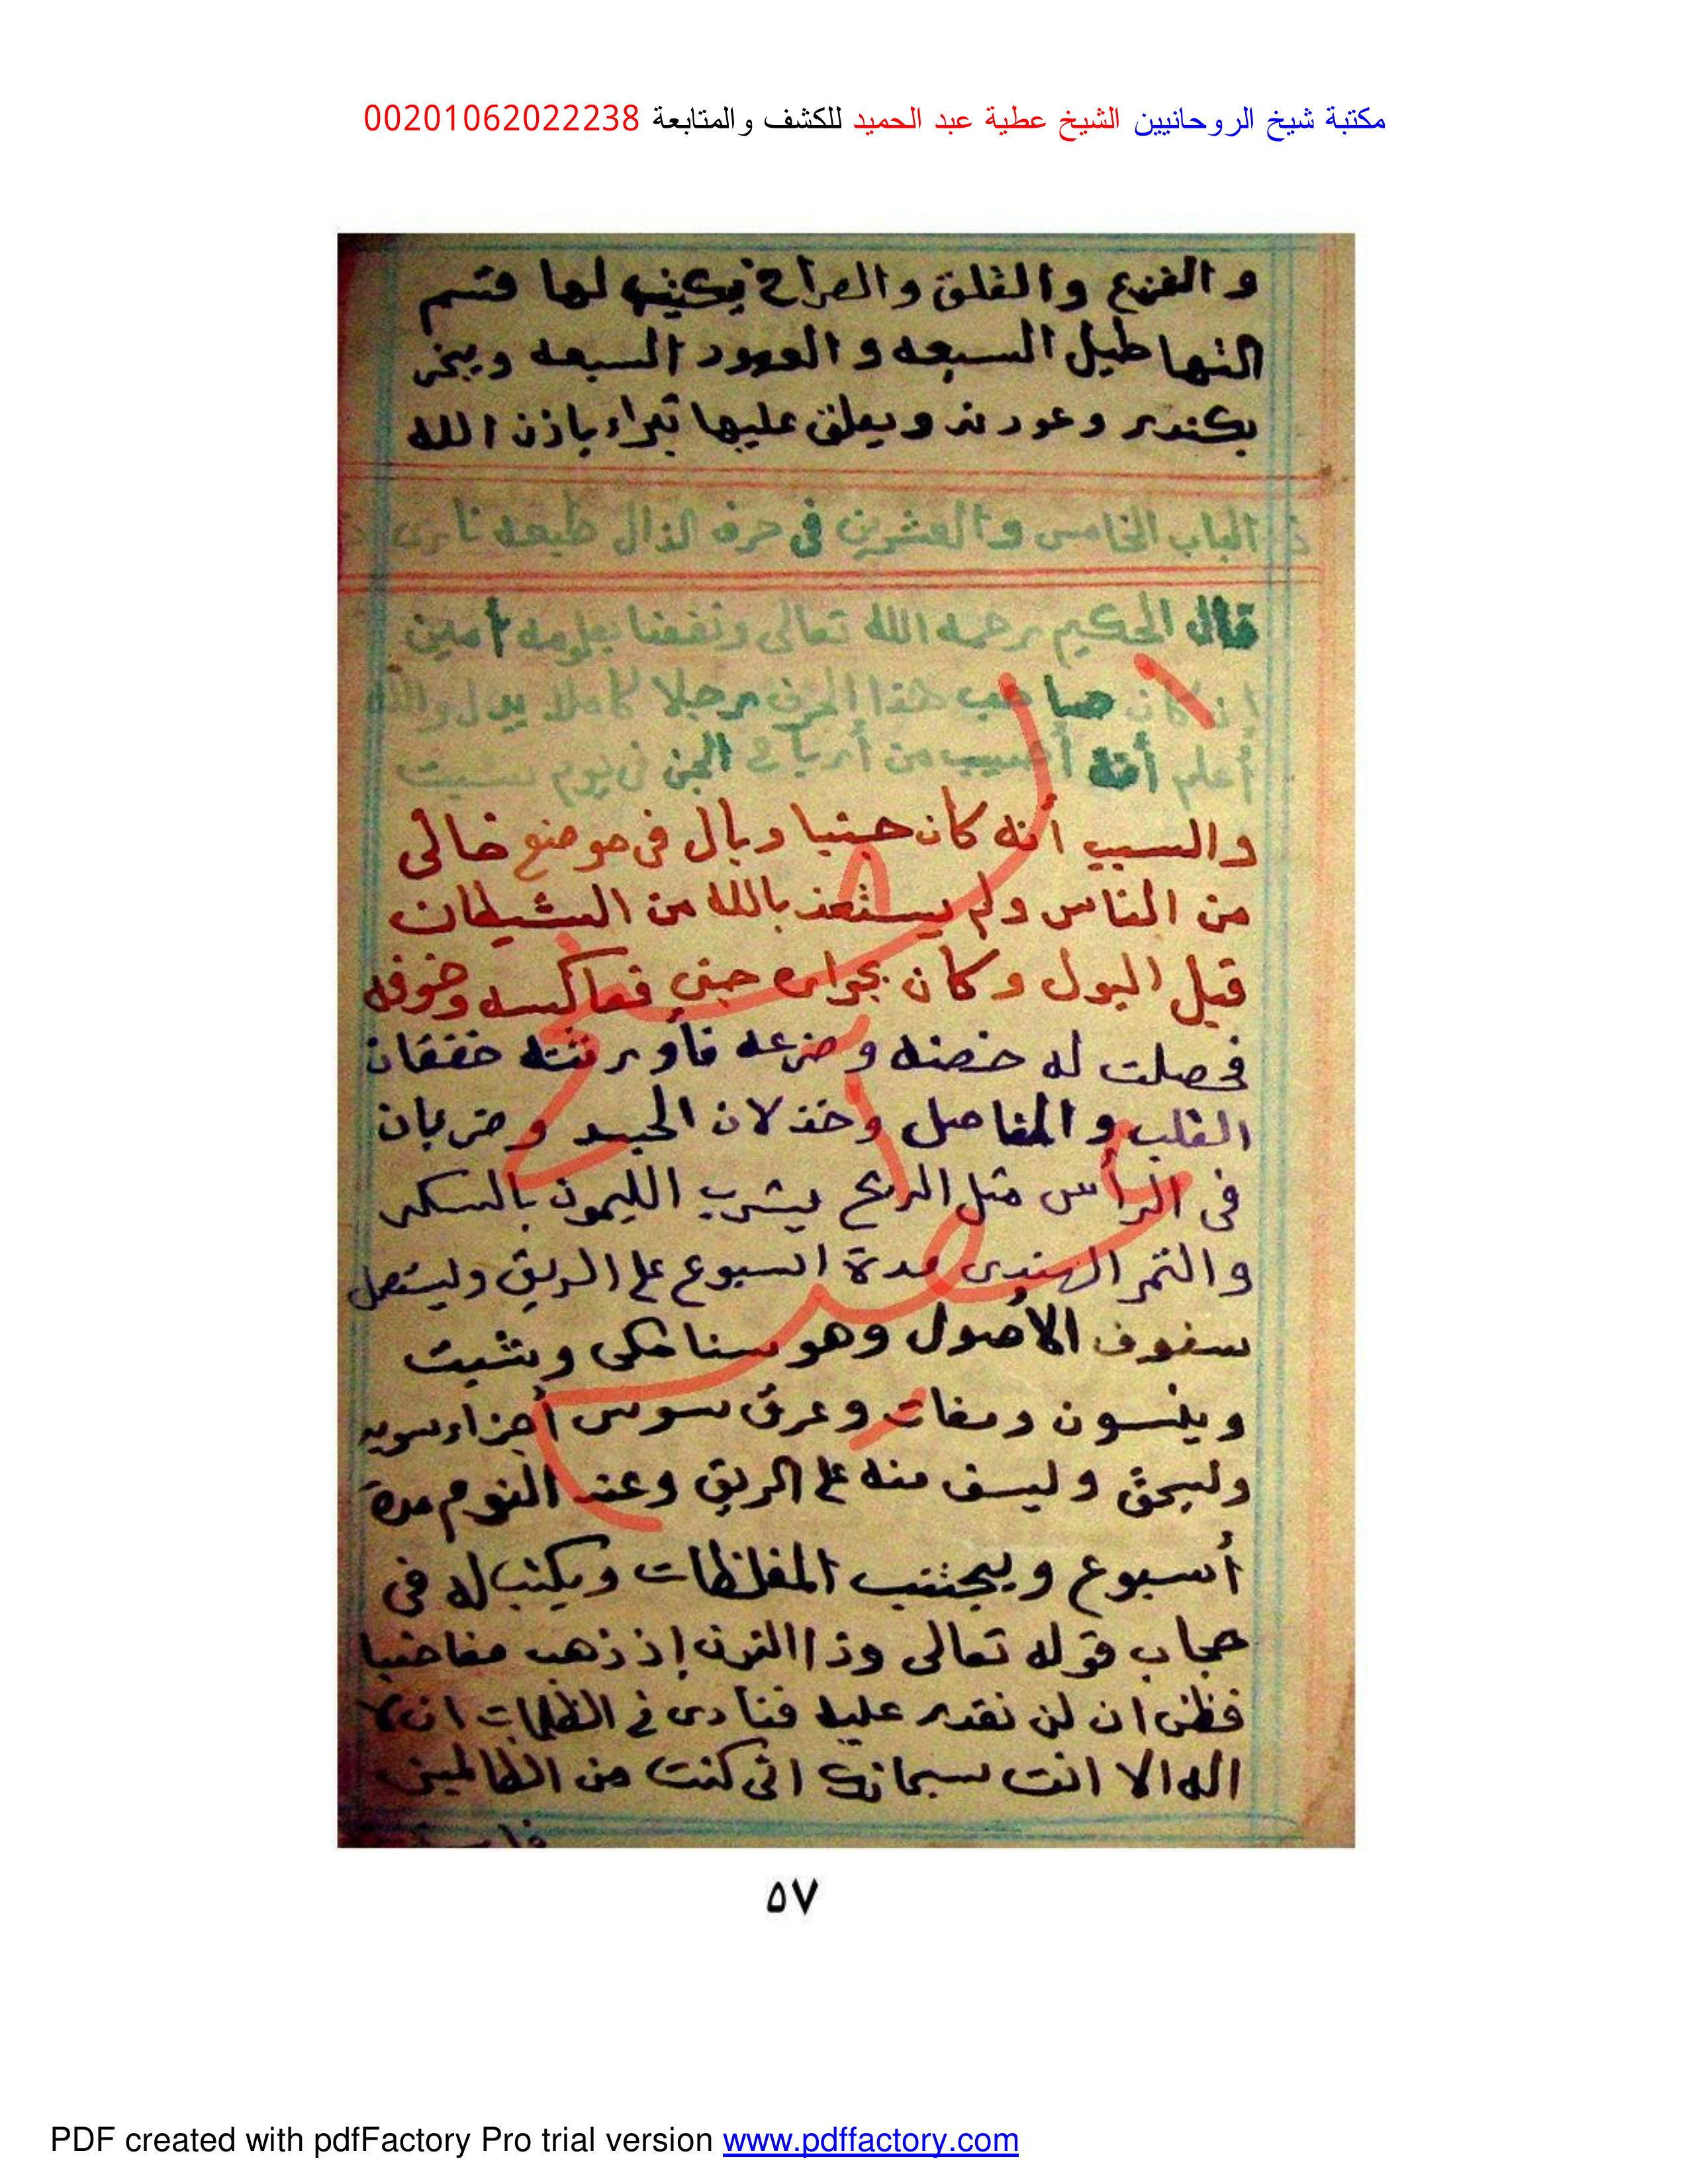 مكتبة شيخ الروحانيين الشيخ عطية عبد الحميد للكشف والمتابعة 00201062022238
و الفزع والقلق والصراخ يكتب لها قسم
النهاطيل السبعه و العهود السبعه ويبخر
بكندر وعود ند ويعلق عليها تبراء باذن الله
الباب الخامس والعشرين فى حرف الذال طبعه نارى
قال الحكيم رحمه الله تعالى ونفعنا بعلومه أمين
إن كان صاحب هذا الحرف رجلا كاملا يدل والله
أعلم أنه أصيب من أرياح الجن فى يوم سبت
والسبب أنه كان جنبا وبال فى موضع خالى
من الناس ولم يستعذ بالله من الشيطان
قبل البول وكان بجواره جنى فعاكسه وخوفه
فحصلت له خضنه وضرعه فأورثته خفقان
القلب والمفاصل وخذلان الجسد وضربان
فى الرأس مثل الريح يشرب الليمون بالسكر
والتمر الهندى مدة اسبوع على الريق وليستعمل
سفوف الأصول وهو سنا مكى وشبت
وينسون ومغات وعرق سوس أجزاء سويه
وليسحق وليسف منه على الريق وعند النوم مدة
أسبوع ويجتنب المغلظات ويكتب له فى
حجاب قوله تعالى وذا النون إذ ذهب مغاضبا
فظن ان لن نقدر عليه فنادى فى الظلمات ان لا
اله الا انت سبحانك انى كنت من الظالمين
٥٧
PDF created with pdfFactory Pro trial version www.pdffactory.com